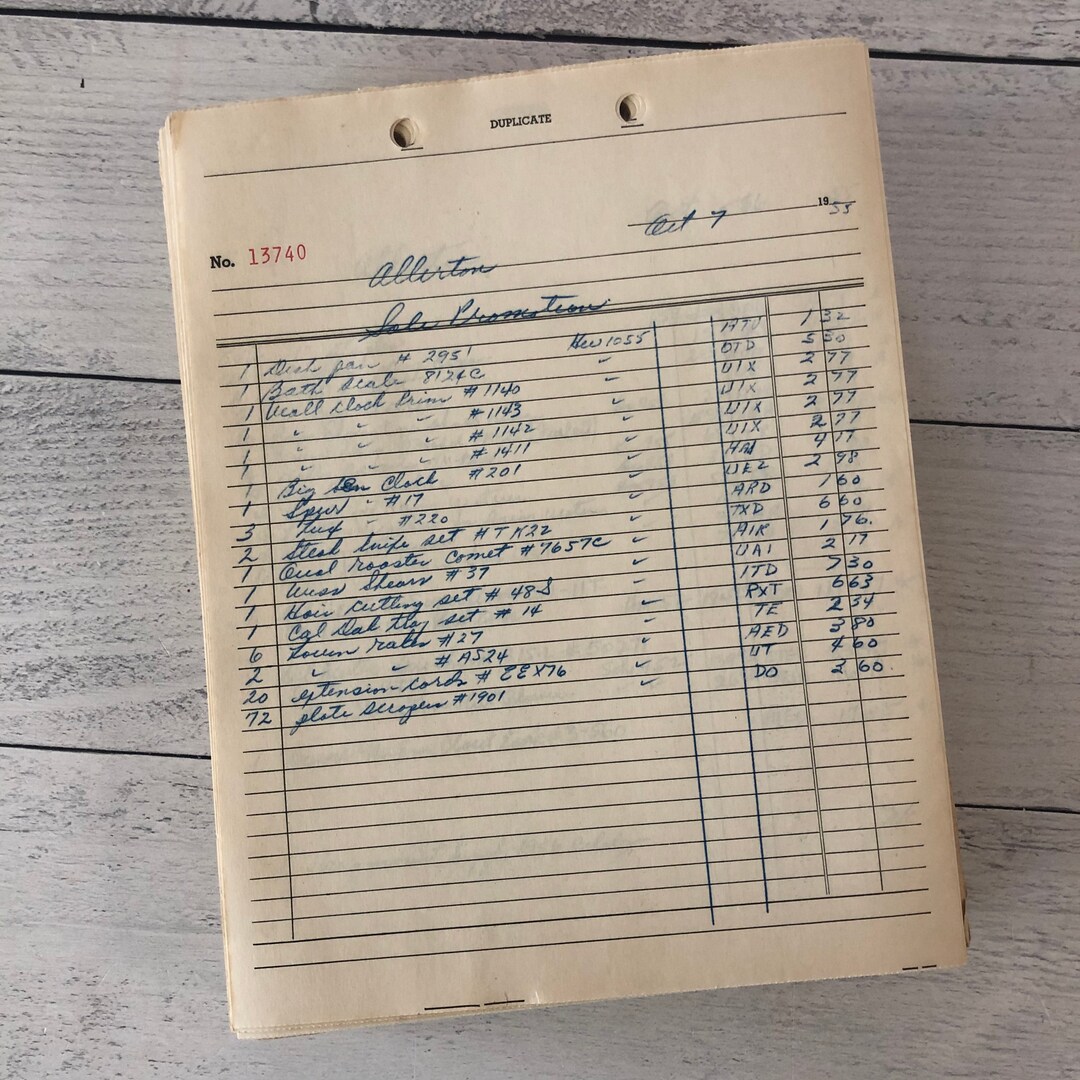 DUPLICATE
Oct 7 1955
No. 13740
Allerton
Sale Promotion
1 Dish pan # 2951 Hew 1055 1 32
1 Bath Scale 8124C OTD 5 50
1 Wall Clock Prim #1140 UIX 2 77
1 " " " #1143 UIX 2 77
1 " " " #1142 UIX 2 77
1 " " " #1411 UIX 2 77
1 Big Ben Clock #201 4 17
1 Spur " #17 UEZ 2 98
3 Lux " #220 ARD 1 60
2 Steak Knife set #TK22 TXD 6 60
1 Oval roaster Comet #7657C AIR 1 76.
1 Wiss Shears #37 UAI 2 17
1 Hair Cutting set # 48S ITD 7 30
1 Cal Dak Tray set # 14 RXT 6 63
6 Lawn rakes #27 TE 2 34
2 " " #AS24 AED 3 80
20 extension cords # EEX76 UT 4 60
72 plate scrapers #1901 DO 2 60